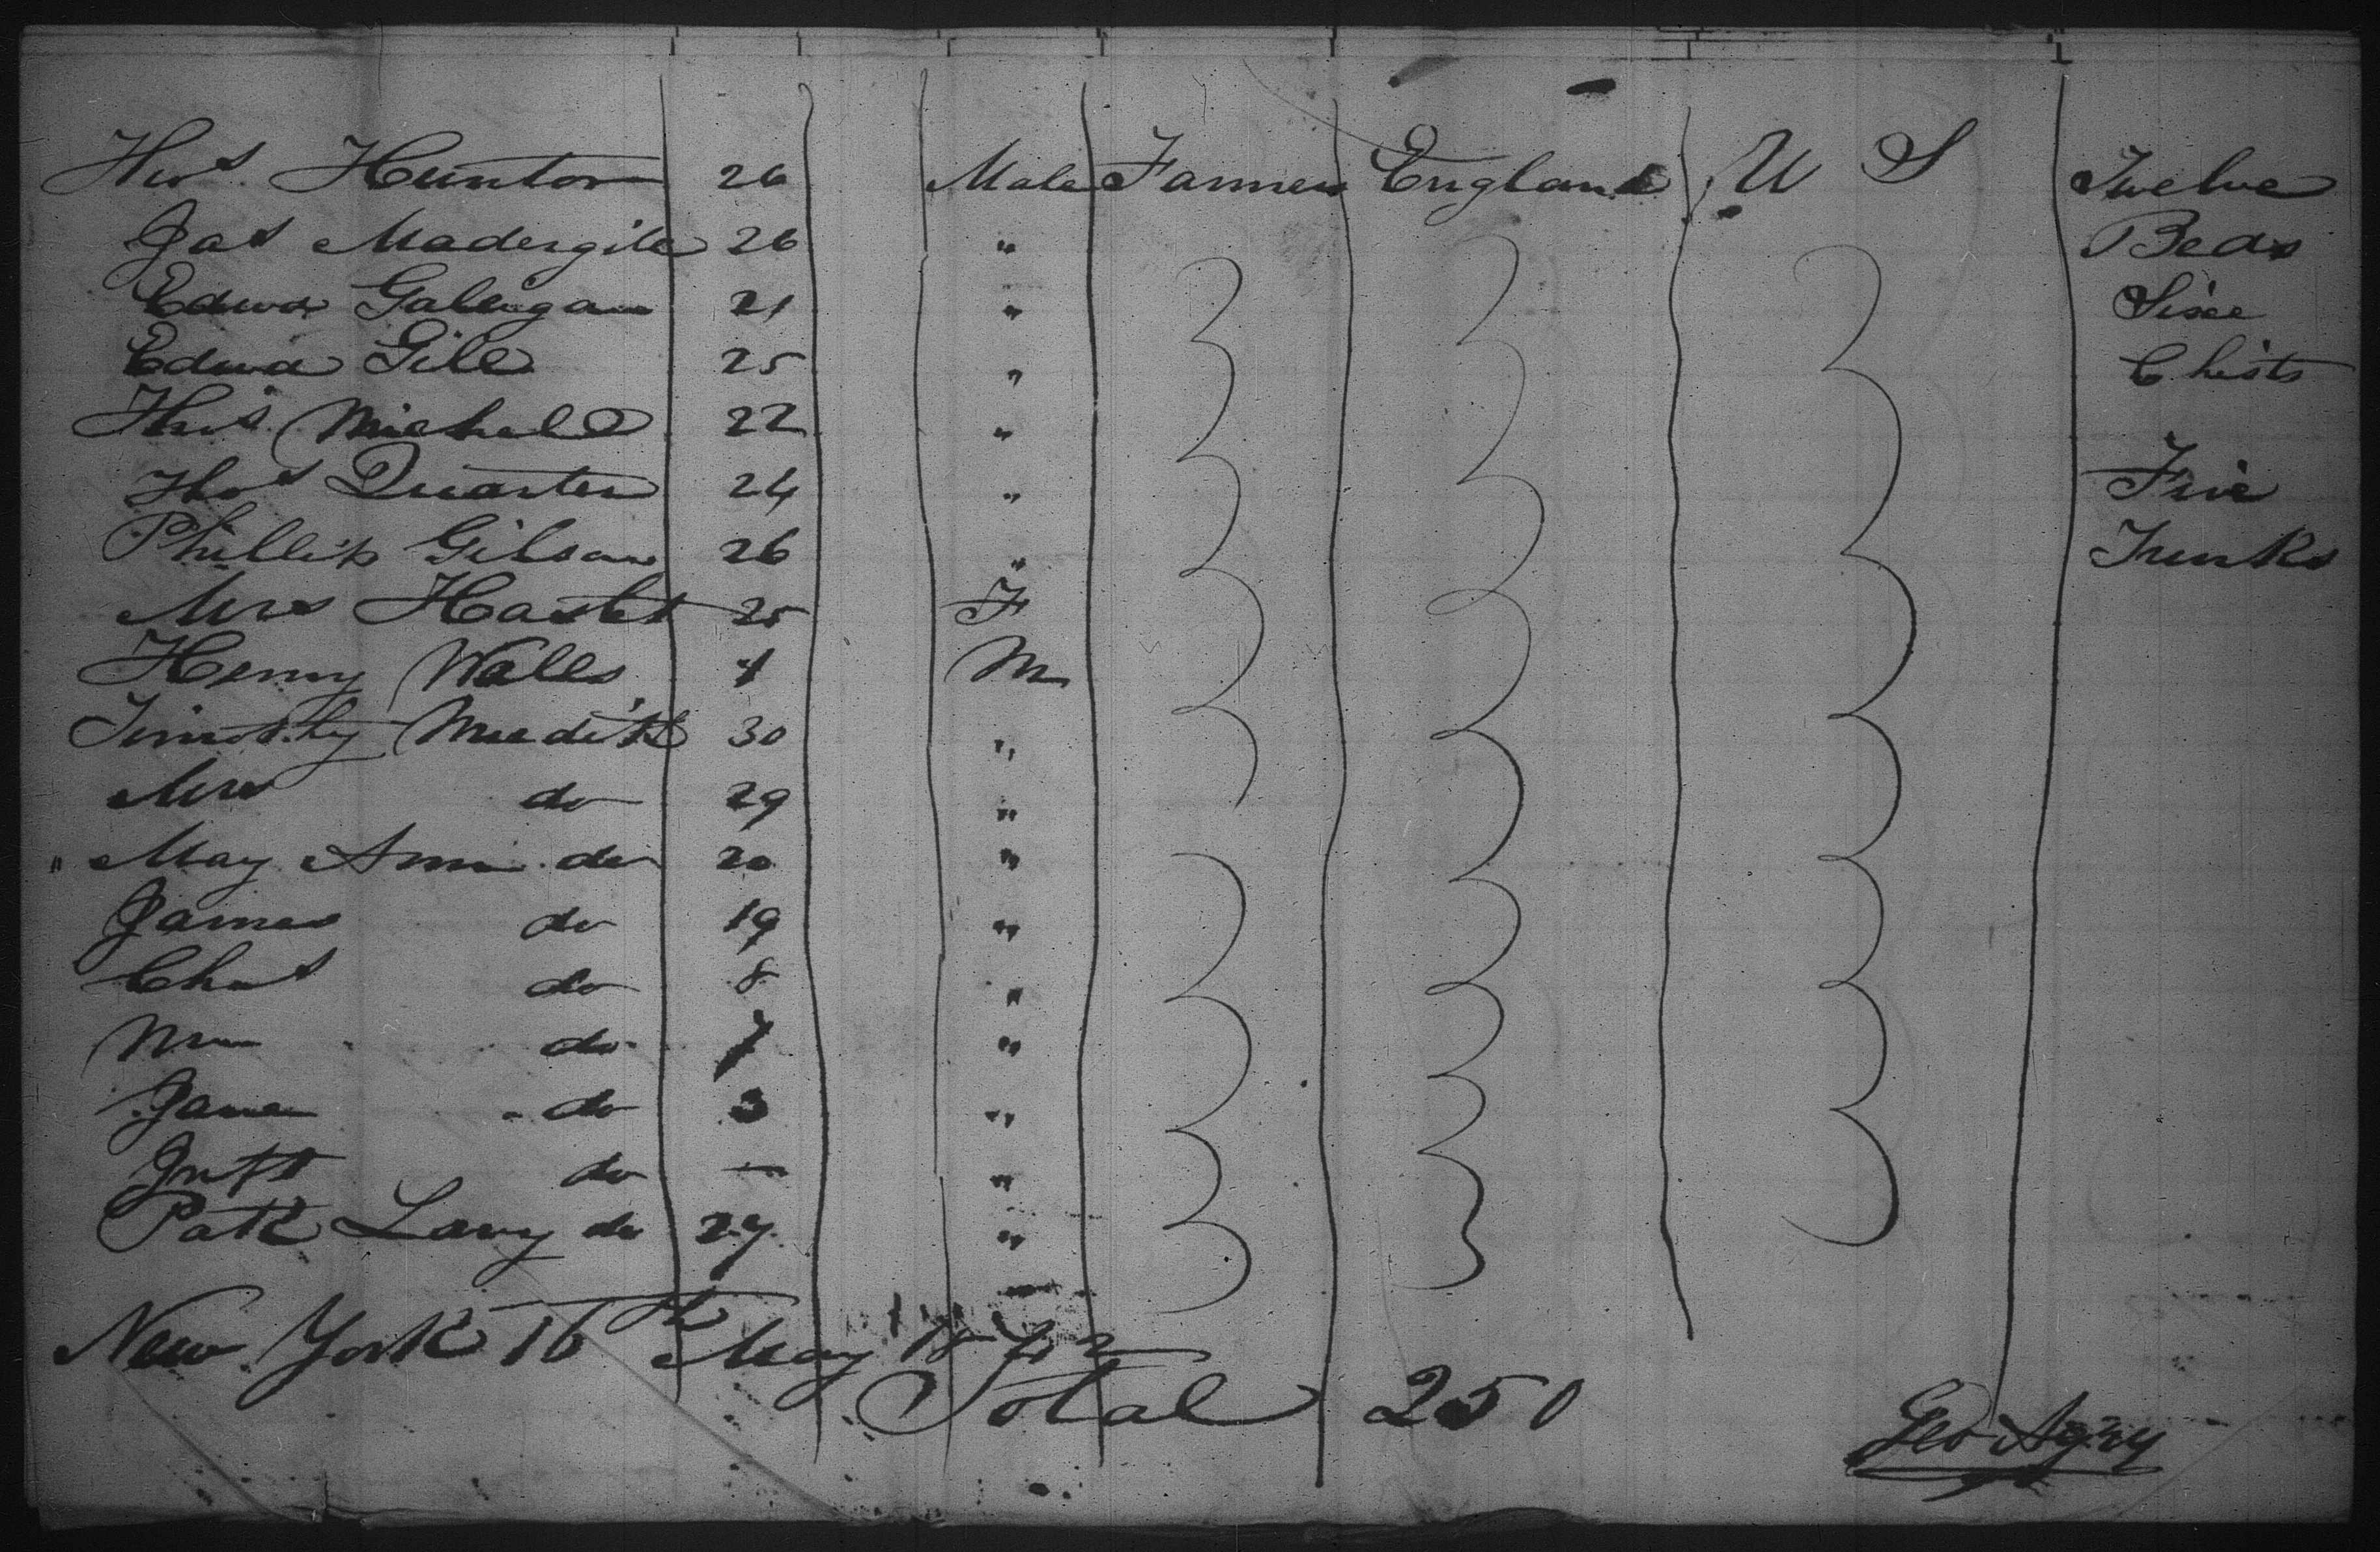 Thos Hunton 26 Male Farmer England U S Twelve
Jas Madergile 26 " Beds
Edwd Galligan 21 "
Edwd Gill 25 " Chists
Thos Michael 22 "
Thos Quarter 24 " Five
Phillip Gibson 26 " Trunks
Mrs Haslet 25 F
Henny Walls 1 M
Timothy Meedith 30 "
Mrs do 29 "
" May Ann do 20 "
James do 19 "
Chas do 8 "
Wm do 7 "
Jane do 3 "
Inft do — "
Patk Lavy do 27 "
New York 16th May 1842
Total 250
Geo